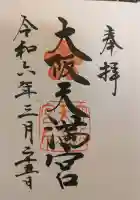 奉拝
大阪天満宮
令和六年三月二五日